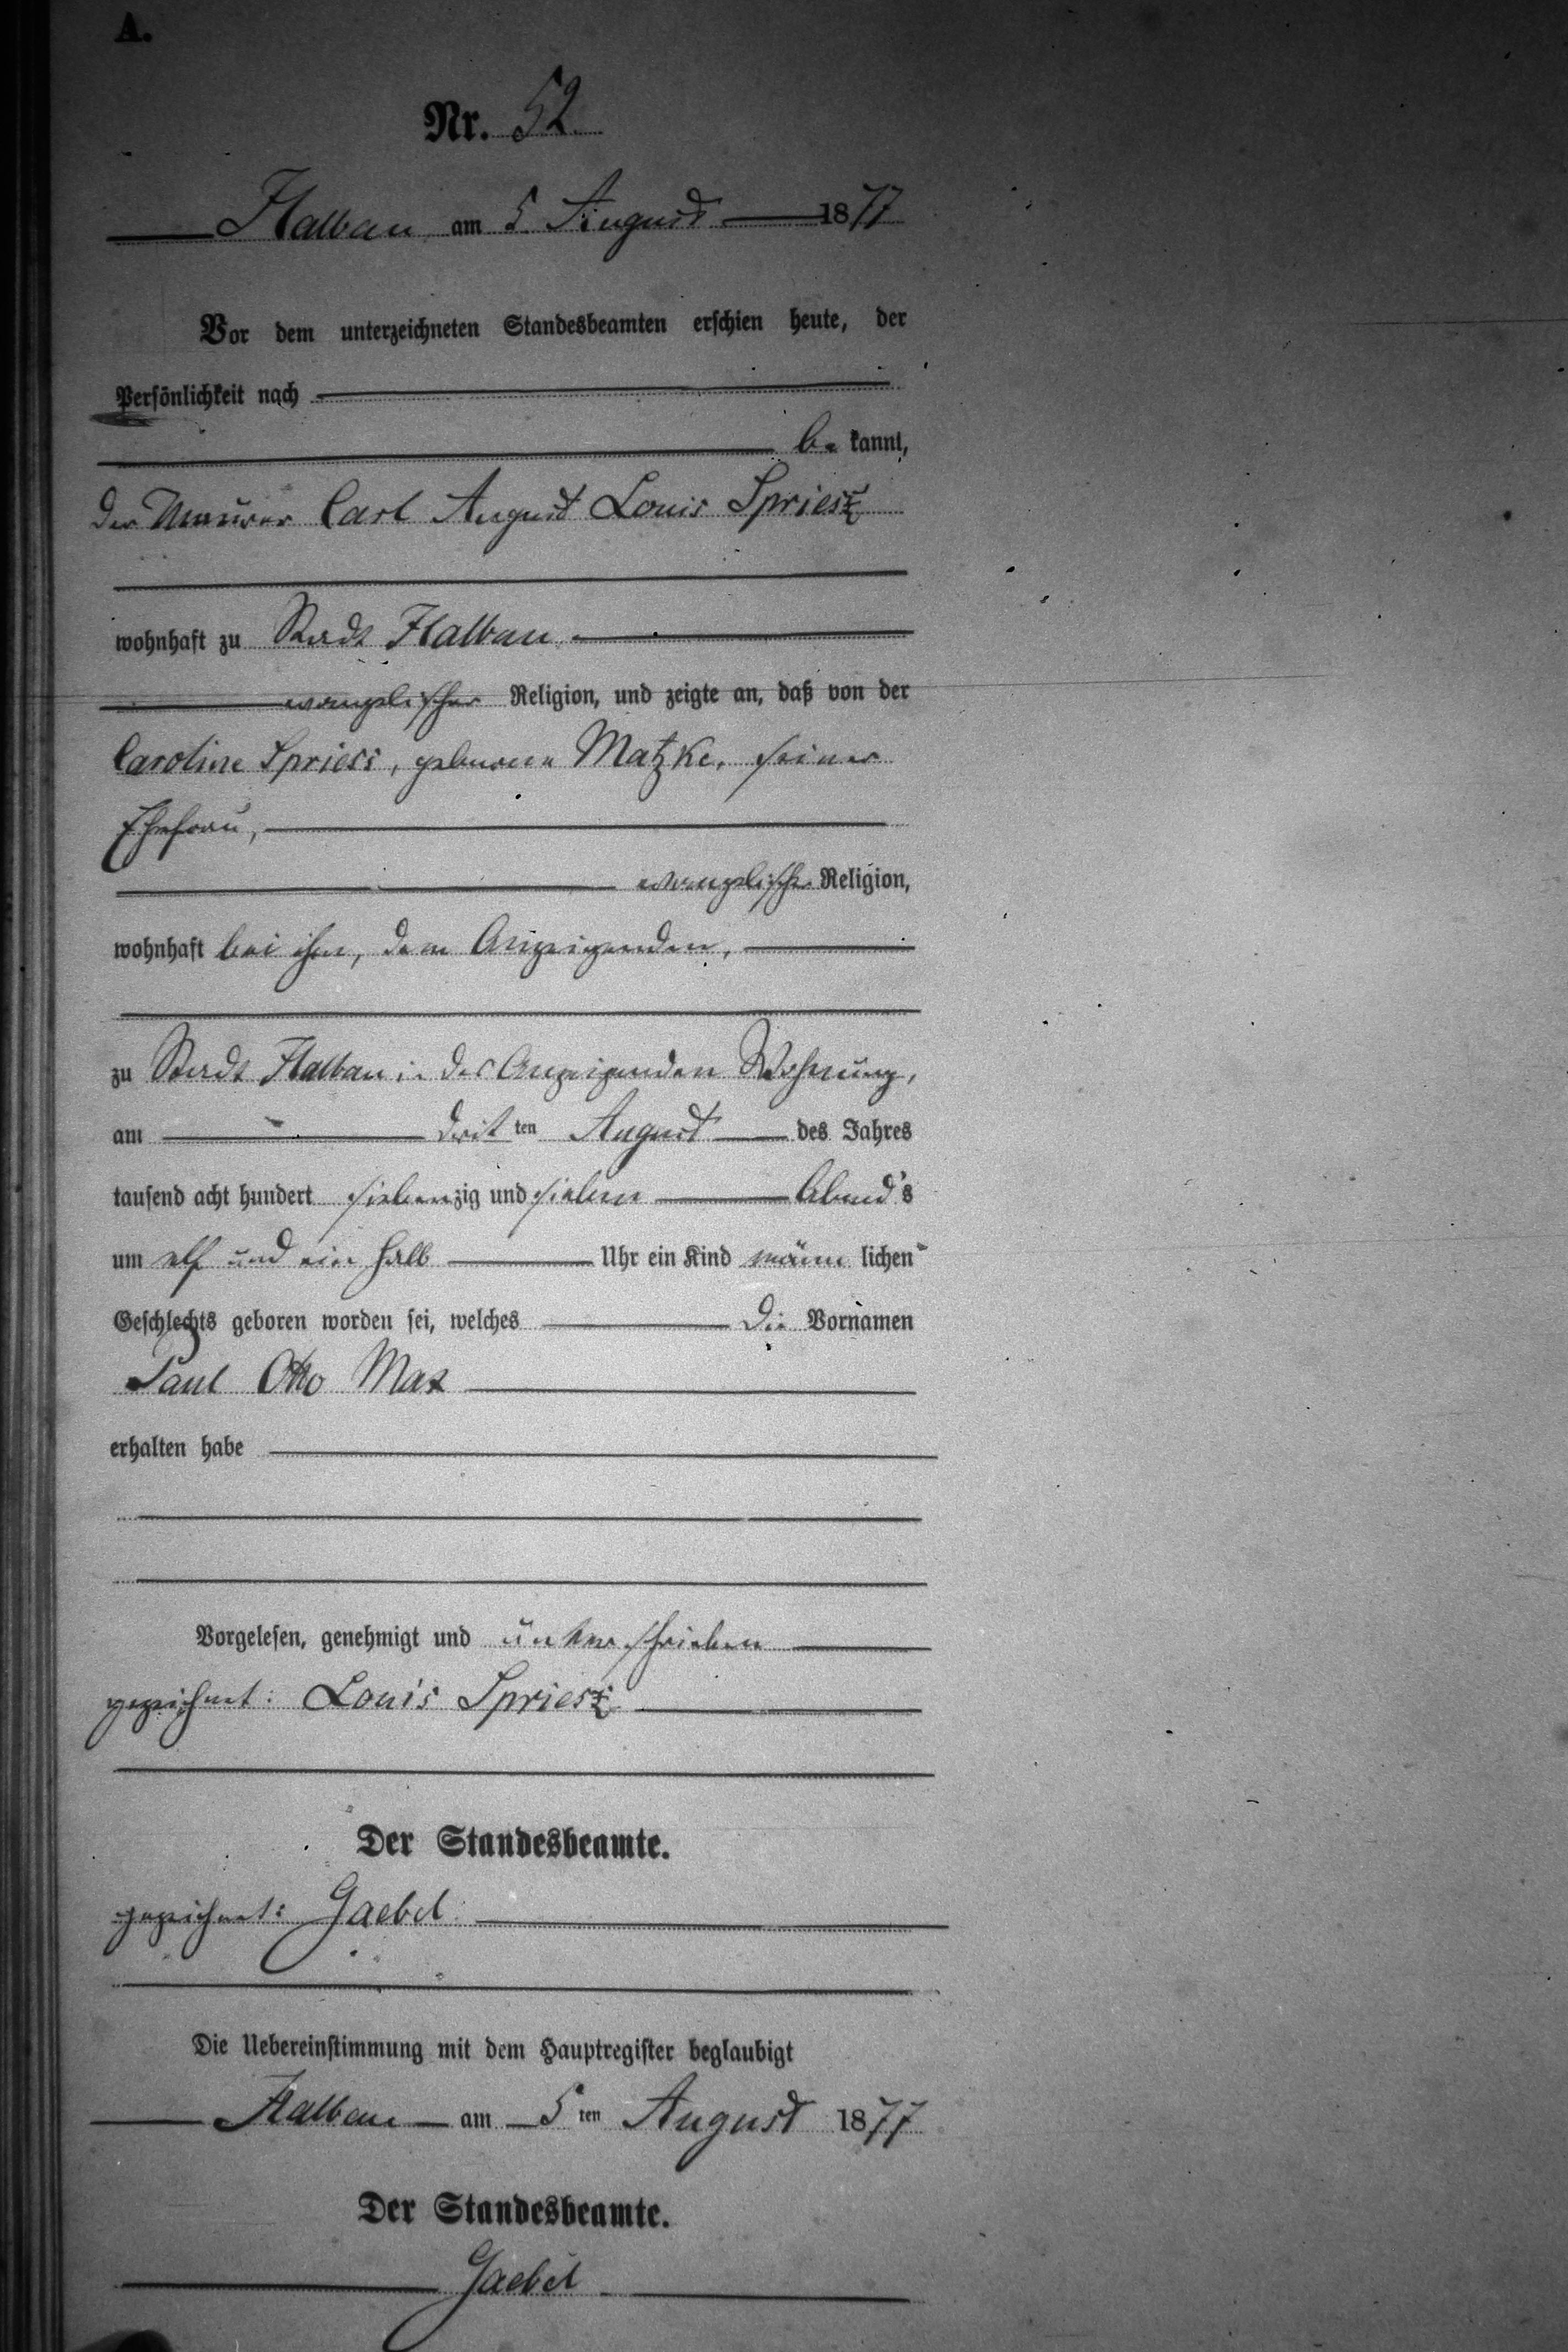 A.
Nr. 52.
Halbau am 5 August 1877
Vor dem unterzeichneten Standesbeamten erschien heute, der
Persönlichkeit nach
be kannt,
der Maurer Carl August Louis Spriesz
wohnhaft zu Stadt Halbau
evangelischer Religion, und zeigte an, daß von der
Caroline Spriess, geborene Matzke, seiner
Ehefrau,
evangelischer Religion,
wohnhaft bei ihm, dem Anzeigenden,
zu Stadt Halbau in des Anzeigenden Wohnung,
am drit ten August des Jahres
tausend acht hundert sieben zig und sieben Abend's
um elf und ein halb Uhr ein Kind männ lichen
Geschlechts geboren worden sei, welches die Vornamen
Paul Otto Max
erhalten habe
Vorgelesen, genehmigt und unterschrieben
gezeichnet: Louis Spriesz
Der Standesbeamte.
gezeichnet: Gaebel
Die Uebereinstimmung mit dem Hauptregister beglaubigt
Halbau am 5 ten August 1877
Der Standesbeamte.
Gaebel